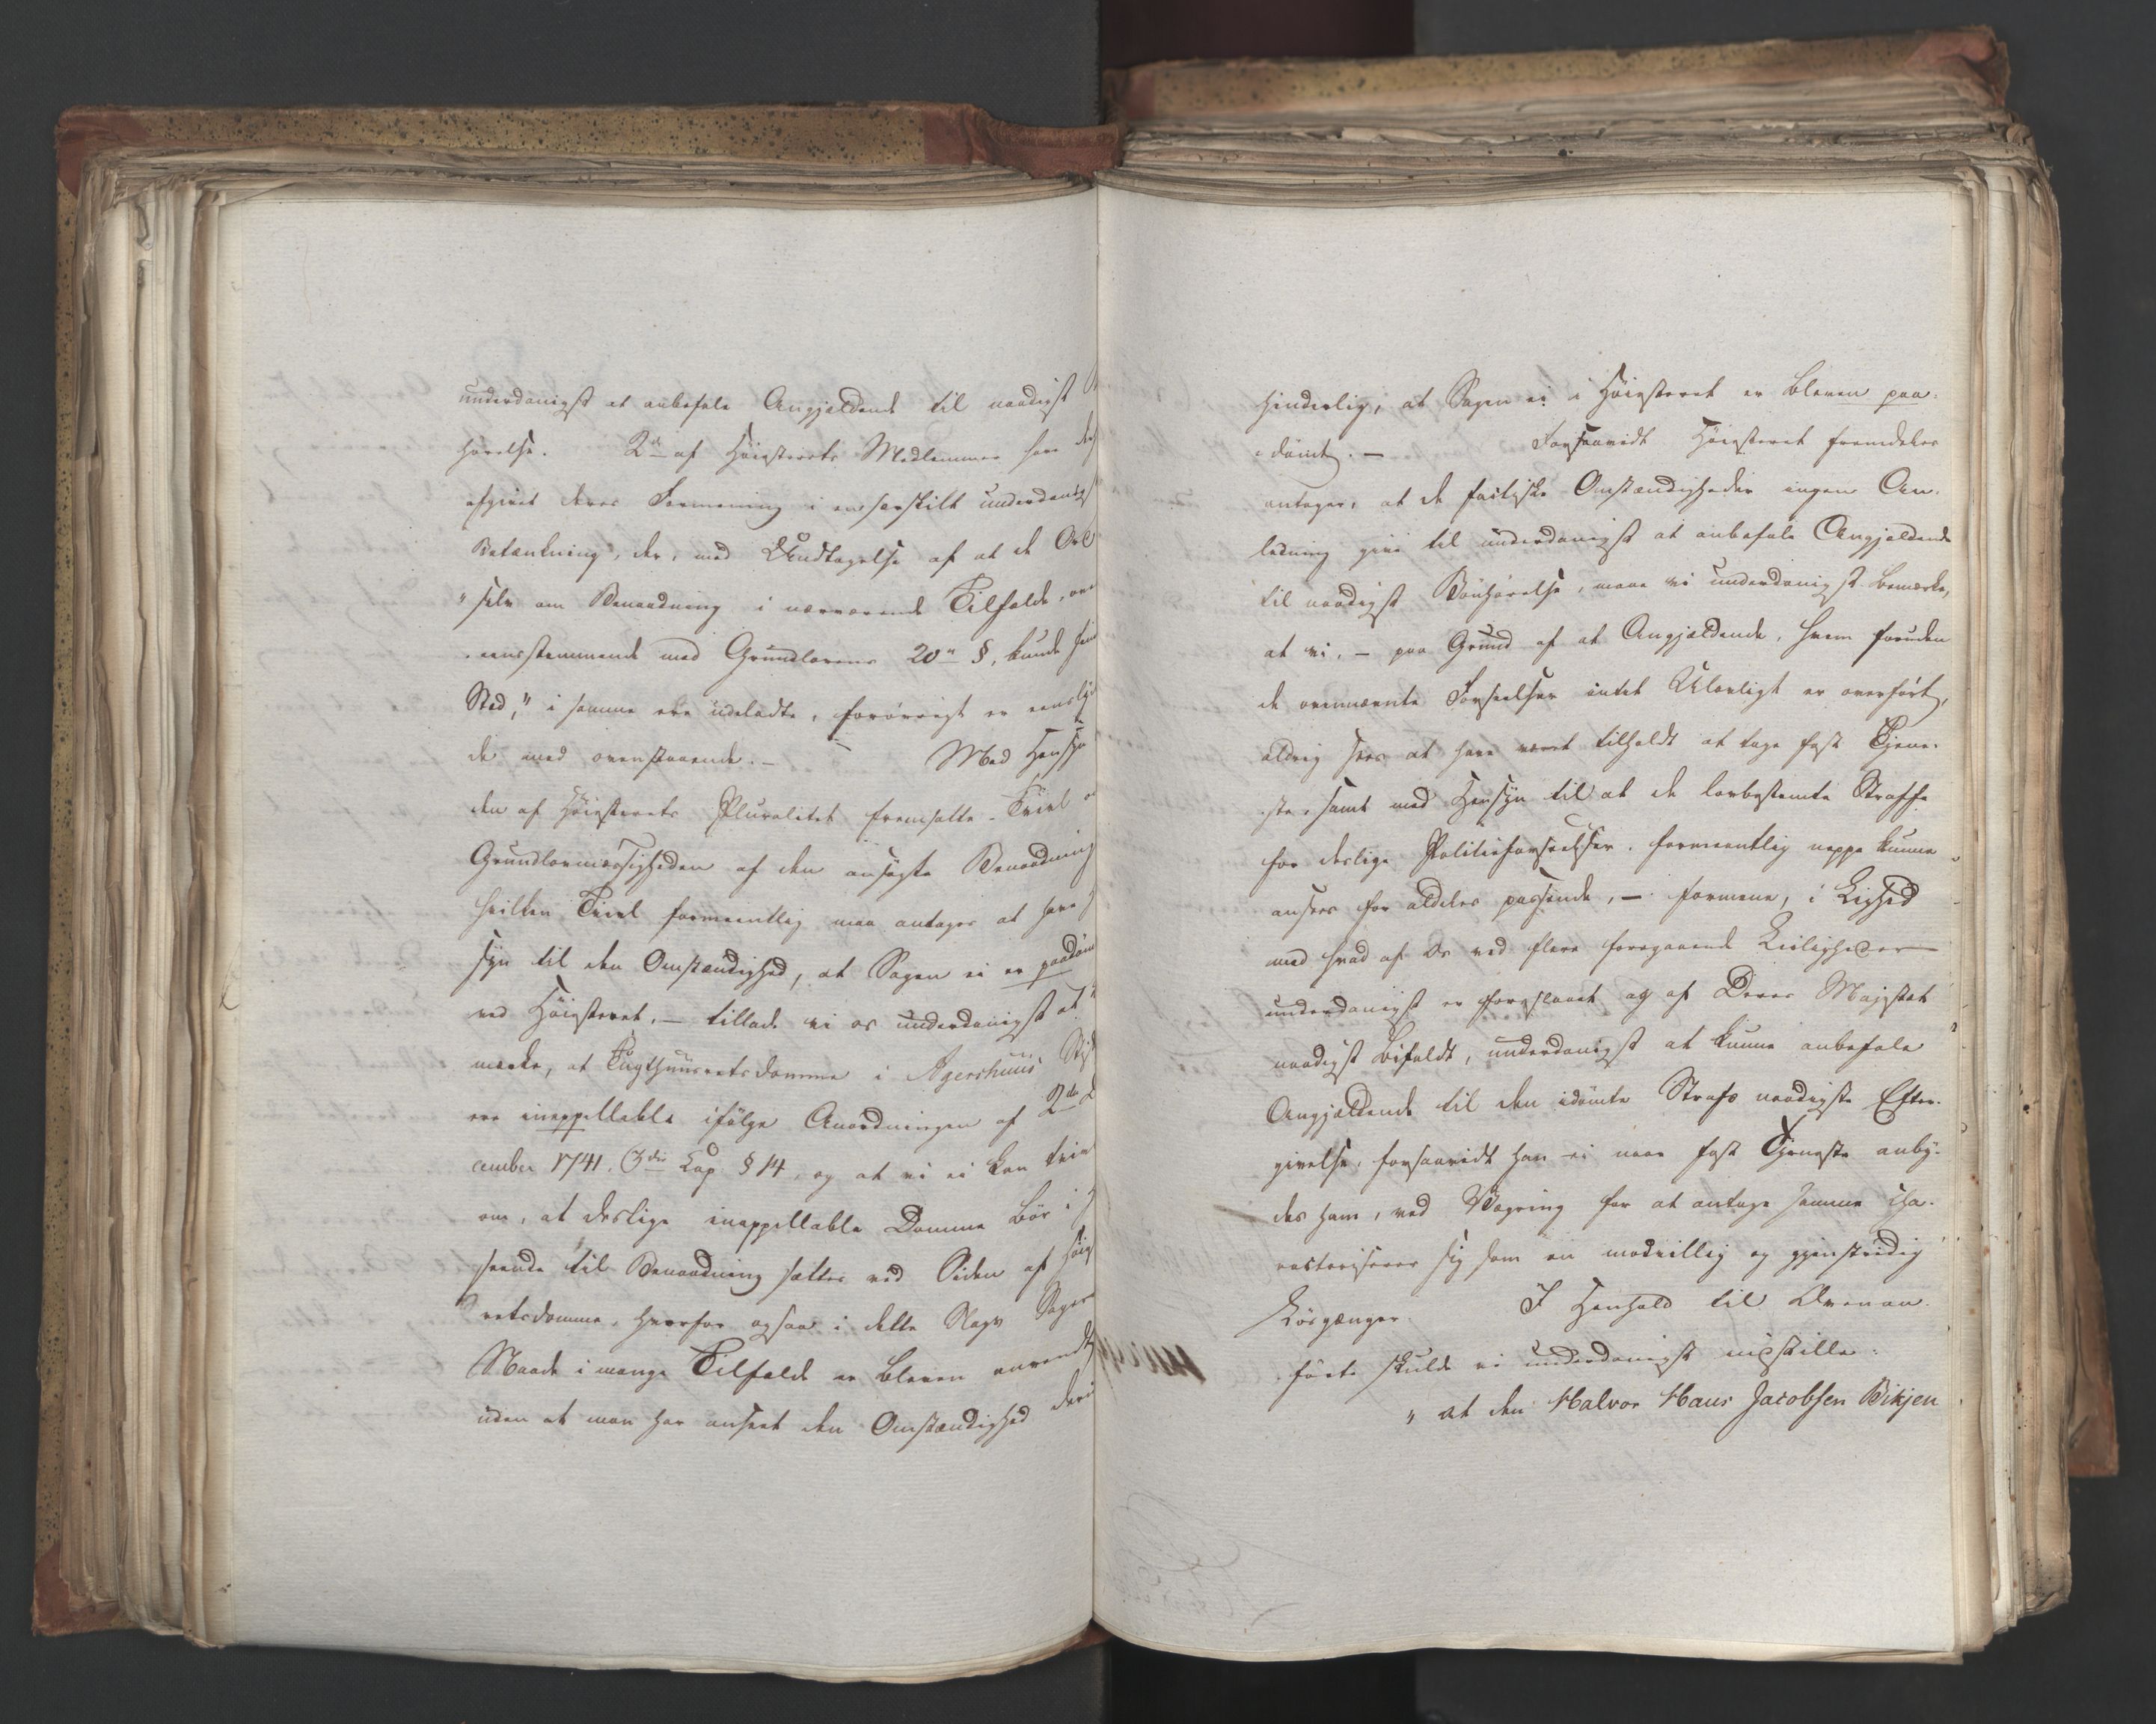 underdanigst at anbefale Angjældende til naadigst
hørelse. 2de af Høiesterets Medlemmer have
afgivet deres Formening i en særskilt underdanigst
Betænkning, der, med Undtagelse af at de Ord
"selv om Benaadning i nærværende Tilfælde, over
eensstemmende med Grundlovens 20de §, kunde finde
Sted," i samme ere udeladte, forøvrigt er eenslyden
de med ovenstaaende. – Med Hensyn
den af Høiesterets Pluralitet fremsatte Tvivl
Grundlovmæssigheden af den ansøgte Benaadning
hvilken Tvivl formeentlig maa antages at have
syn til den Omstændighed, at Sagen ei er paadømt
ved Høiesteret, – tillade vi os underdanigst at
mærke, at Tugthuusretsdomme i Agershuus Stift
ere inappellable ifølge Anordningen af 2den
cember 1741. 3die Cap § 14, og at vi ei kan tvivle
om, at deslige inappellable Domme bør i
seende til Benaadning sættes ved Siden af Høieste
retsdomme, hvorfor ogsaa i dette Slags Sager
Maade i mange Tilfælde er bleven anvendt
uden at man har anseet den Omstændighed
hinderlig, at Sagen ei i Høiesteret er bleven paa-
dømt. – Forsaavidt Høiesteret fremdeles
antager, at de factiske Omstændigheder ingen An-
ledning give til underdanigst at anbefale Angjældende
til naadigst Bønhørelse, maae vi underdanigst bemærke,
at vi, – paa Grund af at Angjældende, hvem foruden
de ovennævnte Forseelser intet Ulovligt er overført,
aldrig sees at have været tilholdt at tage fast Tjene-
ste, samt med Hensyn til at de lovbestemte Straffe
for deslige Politieforseelser, formeentlig neppe kunne
ansees for aldeles passende, – formene, i Lighed
med hvad af os ved flere foregaaende Leiligheder
underdanigst er foreslaaet og af Deres Majestæt
naadigst bifaldt, underdanigst at kunne anbefale
Angjældende til den idømte Strafs naadigste Efter-
givelse, forsaavidt han ei naar fast Tjeneste anby-
des ham, ved Vægring for at antage samme cha-
racteriserer sig som en modvillig og gjenstridig
Løsgænger. I Henhold til Ovenan-
førte skulde vi underdanigst indstille:
"at den Halvor Hans Jacobsen Bikjen